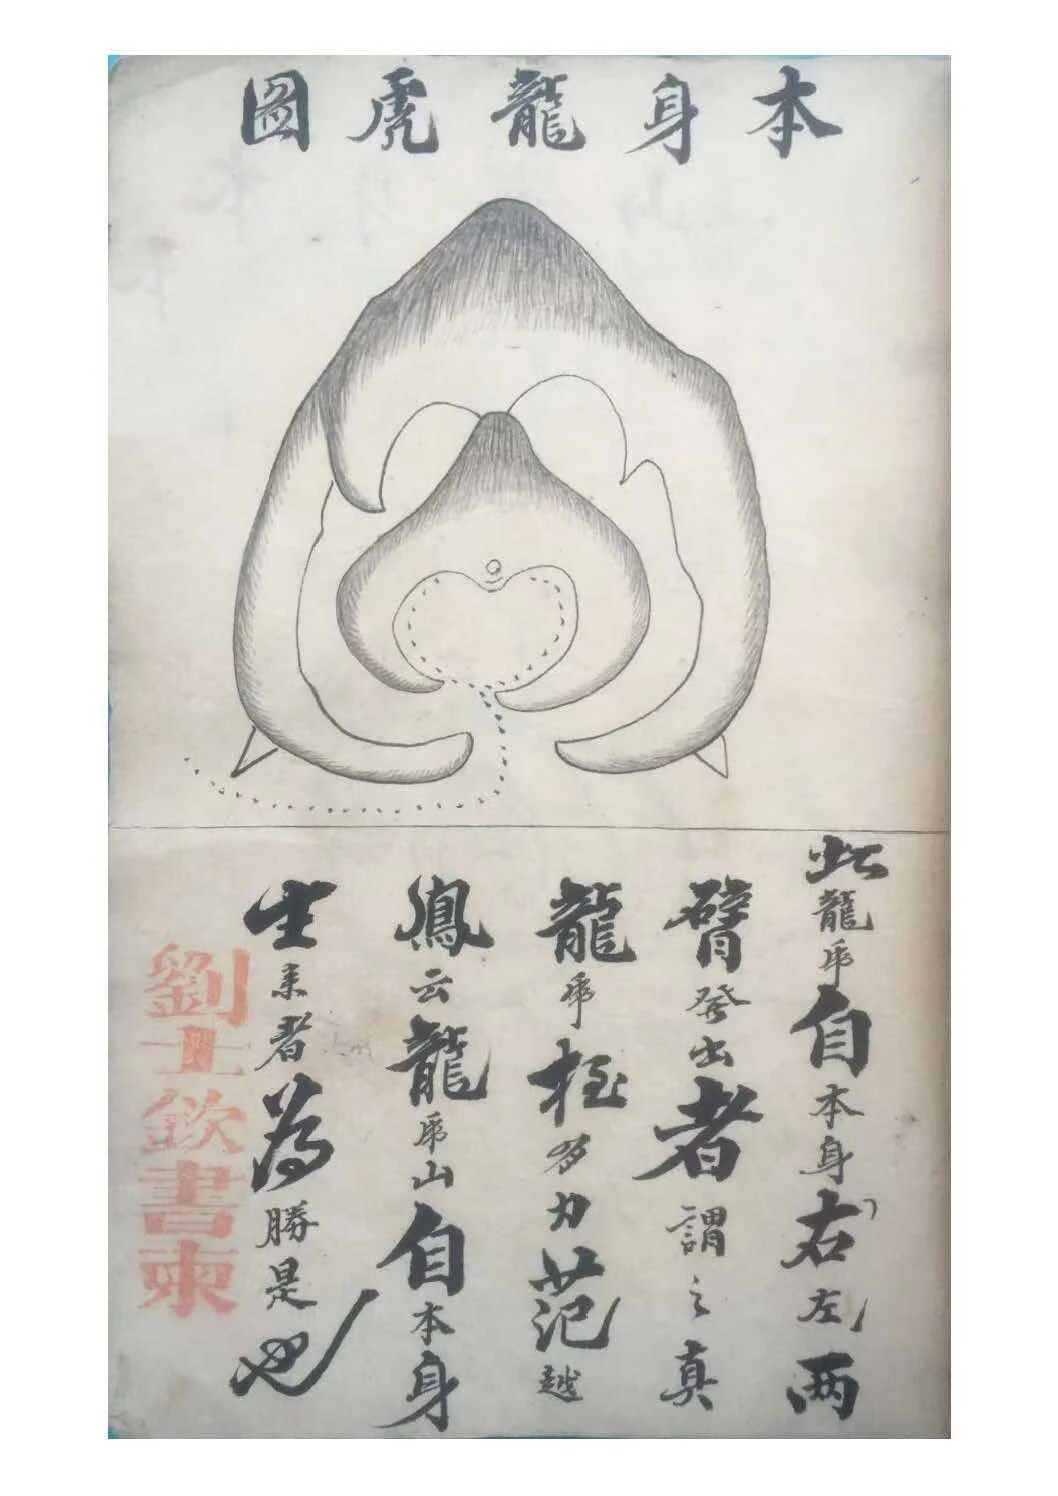 本身龍虎圖
此龍虎自本身右左两
臂發出者謂之真
龍虎多力范越
鳳云龍虎山自本身
生来者為勝是也
劉士欽書柬